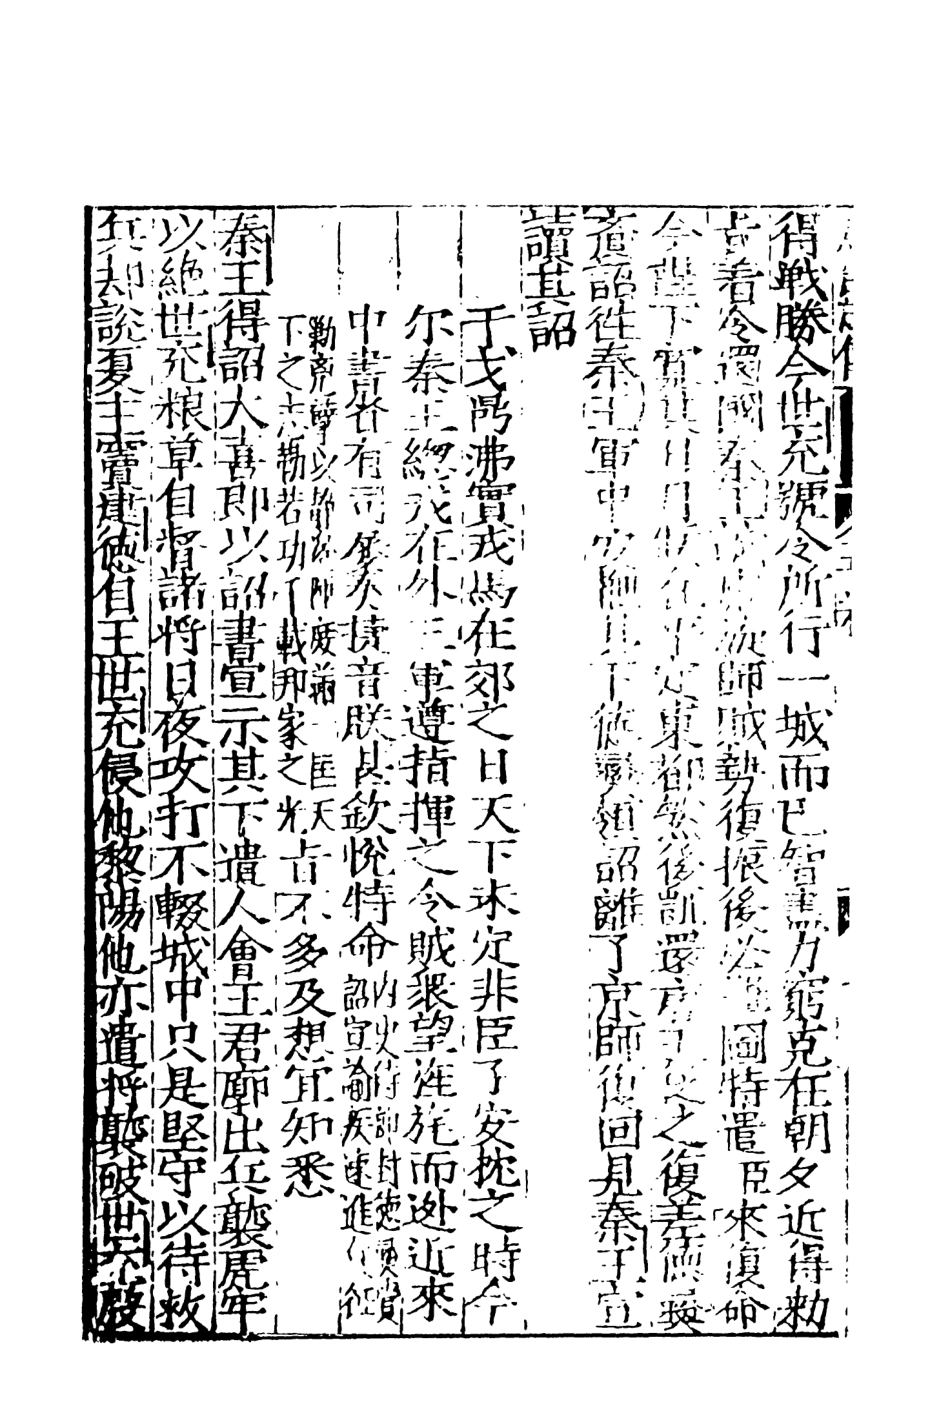 得戰勝今世充號令所行一城而已智盡力窮克在朝夕近得勑
旨着令還國秦王旋師賊勢復振後必難圖特遣臣來復命
今陛下平定東都然後凱還高祖從之復差德彝
賫詔往秦王軍中安師其下德彝領詔離了京師復回見秦王宣
讀其詔
干戈鼎沸實戎馬在郊之日天下未定非臣子安枕之時今
尔秦王總戎在外三軍遵指揮之令賊衆望旌旄而迯近來
中書省有司條奏捷音朕甚欽悅特命內史侍郎封德彝賫
詔宣諭疾速進征
勦竞孽以靜匡天
下之志勒若功了載邦家之光旨不多及想宜知悉
秦王得詔大喜即以詔書宣示其下遣人會王君廓出兵襲虎牢
以絶世充粮草自督諸將日夜攻打不輟城中只是堅守以待救
兵却説夏主竇建德自王世充侵他黎陽他亦遣將襲破世充殷